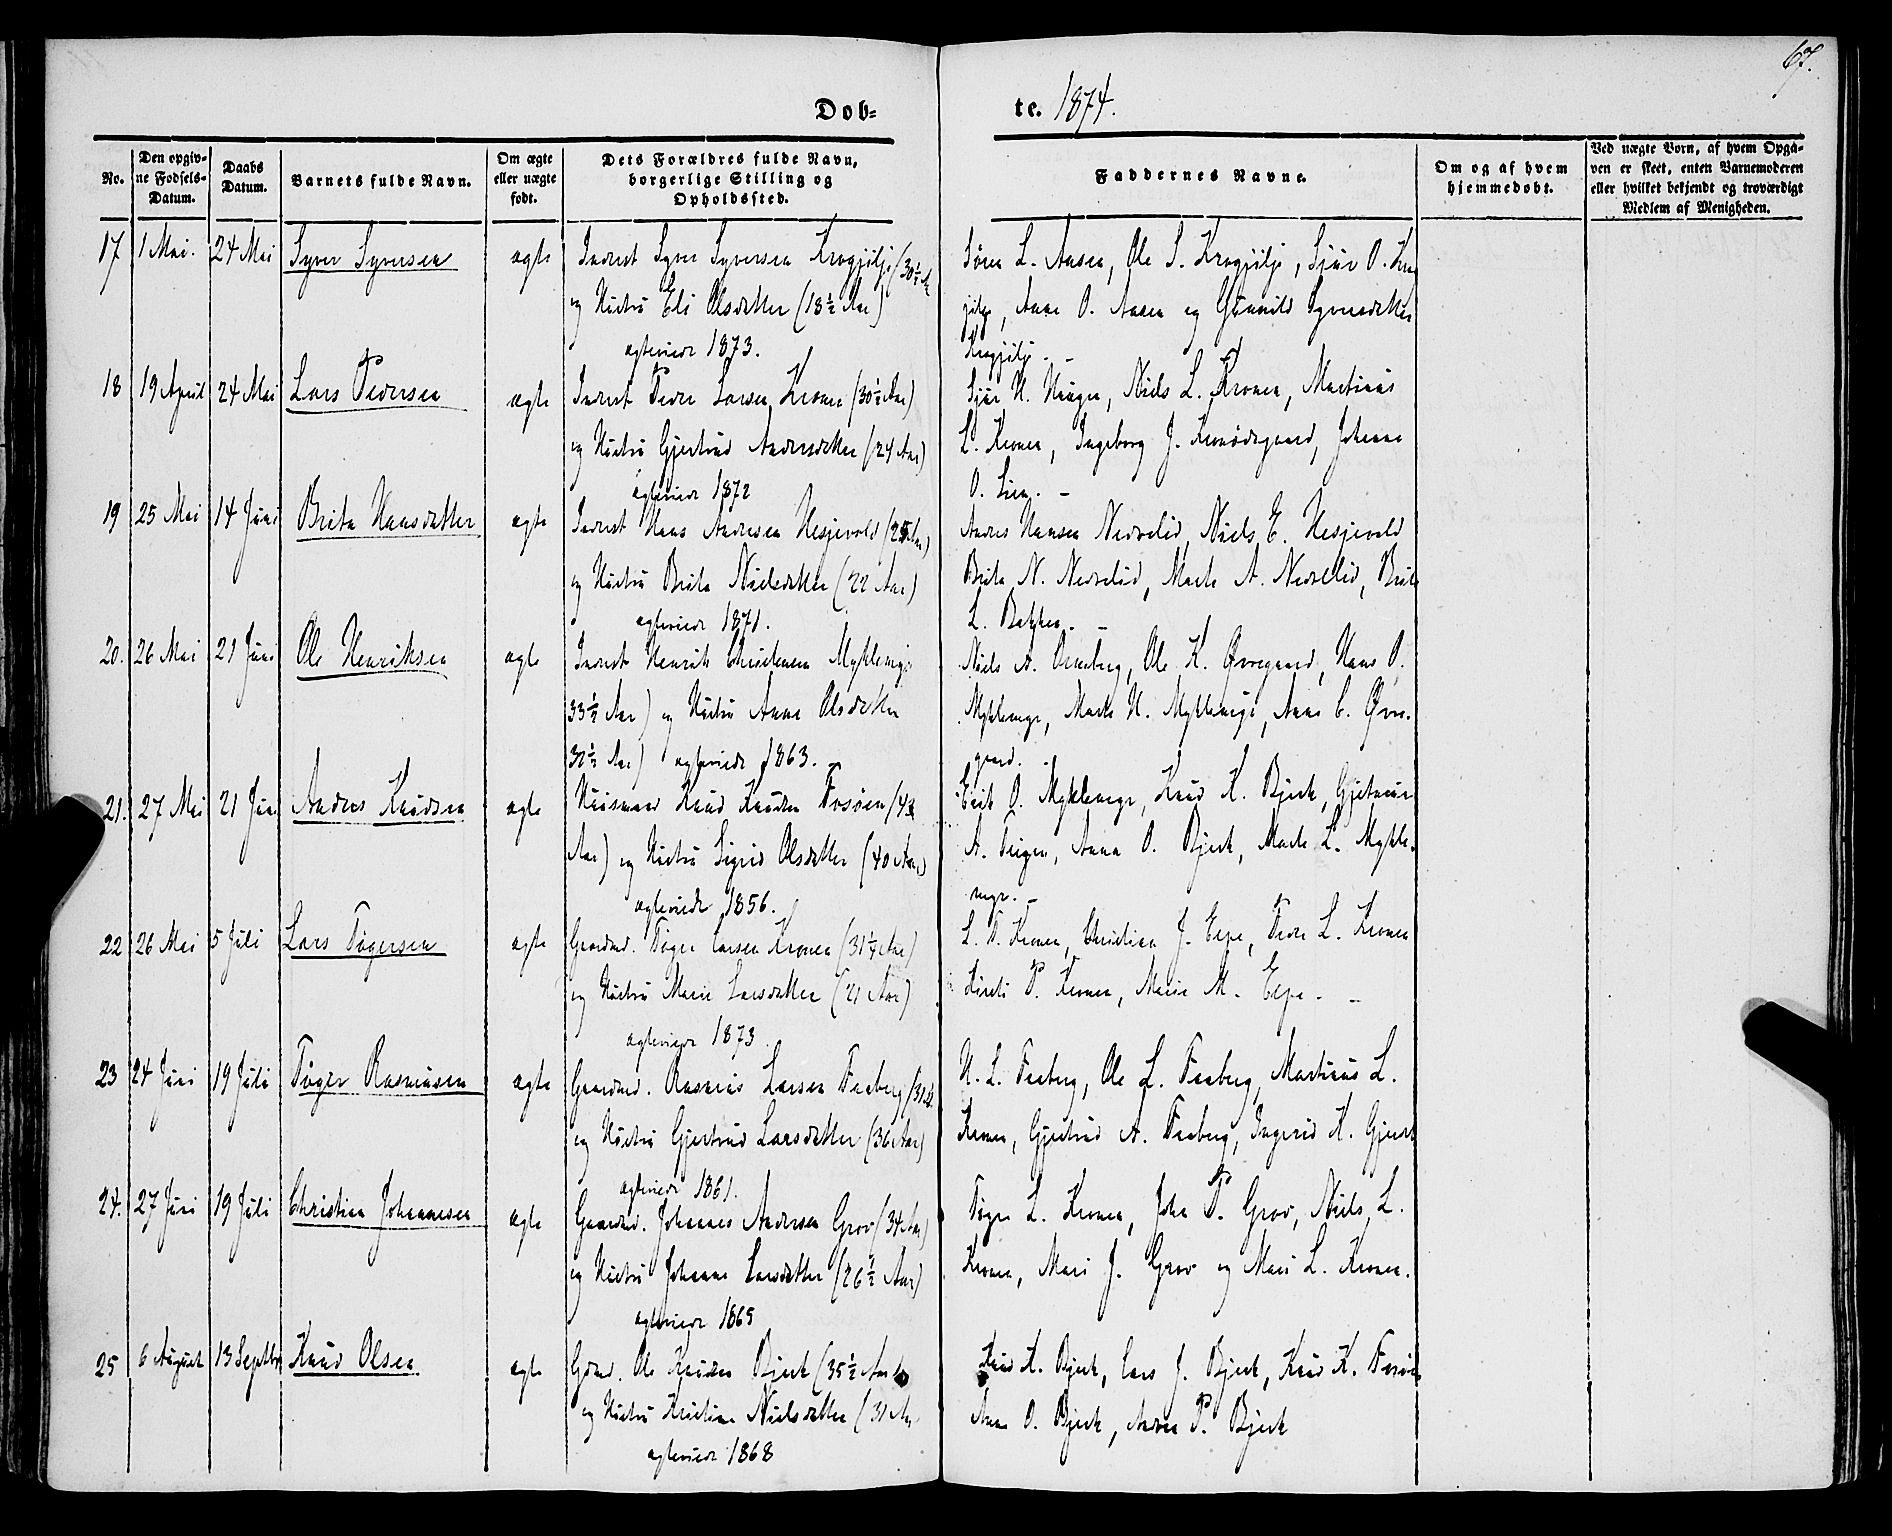 67.
Døb=
te. 1874.
No.
Den opgiv=
ne Fødsels=
Datum.
Daabs
Datum.
Barnets fulde Navn.
Om ægte
eller uægte
født.
Dets Forældres fulde Navn,
borgerlige Stilling og
Opholdssted.
Faddernes Navne.
Om og af hvem
hjemmedøbt.
Ved uægte Børn, af hvem Opga=
ven er skeet, enten Barnemoderen
eller hvilket bekjendt og troværdigt
Medlem af Menigheden.
17 1 Mai. 24 Mai Syver Syversen ægte Inderst Syver Syversen Krogjølje (30½ Aar
og Hustru Eli Olsdatter (18½ Aar)
ægteviede 1873.
Søren L. Aasen, Ole S. Krogjølje, Sjur O. Kro
jølje, Anne O. Aasen og Gunnild Syversdatter
Krogjølje. -
18 19 April 24 Mai Lars Pedersen ægte Inderst Peder Larsen Kronen (30½ Aar)
og Hustru Gjertrud Andersdatter (24 Aar)
ægteviede 1872
Sjur H. Niels L. Kronen, Martinus
L. Kronen, Ingeborg J. Johanne
O. Lien. -
19 25 Mai 14 Juni Brita Hansdatter ægte Inderst Hans Andersen Hesjevold (25 Aar)
og Hustru Brita Nielsdatter (22 Aar)
ægteviede 1871.
Anders Hansen Nedrelid, Niels E. Hesjevold
Brita N. Nedrelid, Marte A. Nedrelid, Brit
L. Bakken. -
20. 26 Mai 21 Juni Ole Henriksen ægte Inderst Henrik Christensen Myklemyr
33½ Aar) og Hustru Anne Olsdatter
30½ Aar) ægteviede 1863. -
Niels A. Ormberg, Ole K. Øvregaard, Hans O.
Myklemyr, Marte H. Myklemyr, Anne C. Øvre.
gaard.
21. 27 Mai 21 Jun Anders Knudsen ægte Huusmand Knud Knudsen Fosøen (43
Aar) og Hustru Sigrid Olsdatter (40 Aar)
ægteviede 1856.
Erik O. Myklemyr, Knud K. Bjerk,
A. Teigen, Anna O. Bjerk, Marte L. Mykle.
myr. -
22 26 Mai 5 Juli Lars Tøgersen ægte Gaardmd. Tøger Larsen Kronen (31¼ Aar)
og Hustru Marie Larsdatter (21 Aar)
ægteviede 1873.
L. T. Kronen, Christian J. Espe, Peder L. Kronen
Kirsti P. Kronen, Marie M. Espe. -
23 24 Juni 19 Juli Tøger Rasmusen ægte Gaardmd. Rasmus Larsen Faaberg (31
og Hustru Gjertrud Larsdatter (36 Aar)
ægteviede 1861.
H. L. Faaberg, Ole L. Faaberg, Martinus L.
Kronen, Gjertrud A. Faaberg, Ingerid K.
24. 27 Juni 19 Juli Christian Johannesen ægte Gaardmd. Johannes Andersen Grov (34 Aar)
og Hustru Johanne Larsdatter (26½ Aar)
ægteviede 1865
Tøger L. Kronen, John P. Grov, Niels L.
Kronen, Mari J. Grov og Mari L. Kronen.
25 6 August 13 Septbr Knud Olsen ægte Gdmd. Ole Knudsen Bjerk (35½ Aar
og Hustru Kristine Nielsdatter (31 Aar
ægteviede 1868
Knud K. Bjerk, Lars J. Bjerk, Knud K. Fosøen
Anne O. Bjerk, Anders P. Bjerk